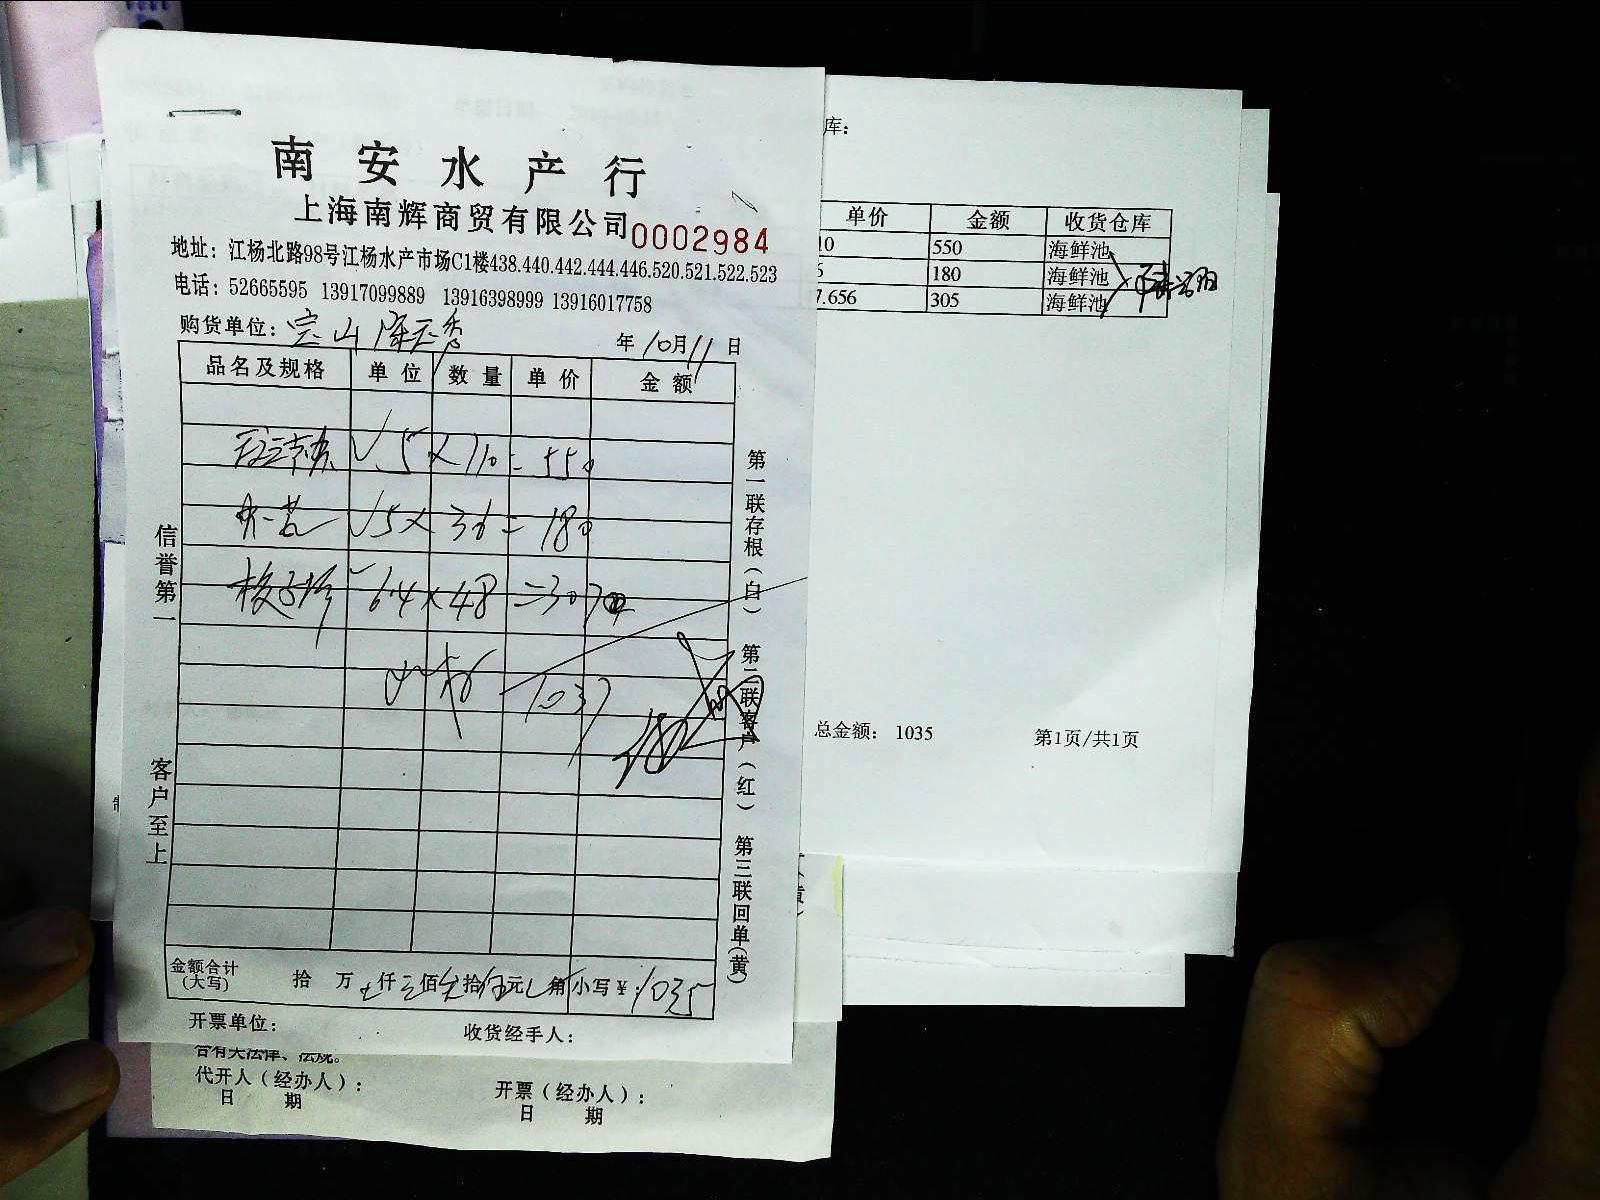 南安水产行
上海南辉商贸有限公司 0002984
地址：江杨北路98号江杨水产市场C1楼438.440.442.444.446.520.521.522.523
电话：52665595 13917099889 13916398999 13916017758
购货单位：宝山 年10月11日
品名及规格 单位 数量 单价 金额
5×110=550
5×36=180
64×48=307
1037
金额合计(大写) 拾 万 仟 佰 拾 元 角 小写¥：1035
开票单位： 收货经手人：
信誉第一
客户至上
第一联存根（白） 第二联客户（红） 第三联回单（黄）
库：
单价 金额 收货仓库
10 550 海鲜池
6 180 海鲜池
7.656 305 海鲜池
总金额： 1035 第1页/共1页
合有关法律、法规。
代开人（经办人）： 开票（经办人）：
日 期 日 期